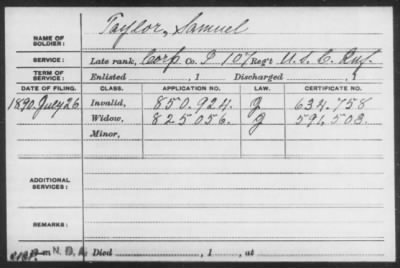 NAME OF SOLDIER: Taylor, Samuel
SERVICE: Late rank, Corp Co. I 107 Reg't U.S.C. Inf.
TERM OF SERVICE: Enlisted , 1 Discharged , 1
DATE OF FILING. CLASS. APPLICATION NO. LAW. CERTIFICATE NO.
1890. July 26 Invalid, 850.924. J 634.758
Widow, 825056. J 591,503.
Minor,
ADDITIONAL SERVICES:
REMARKS:
N.D.A. Died , 1 , at